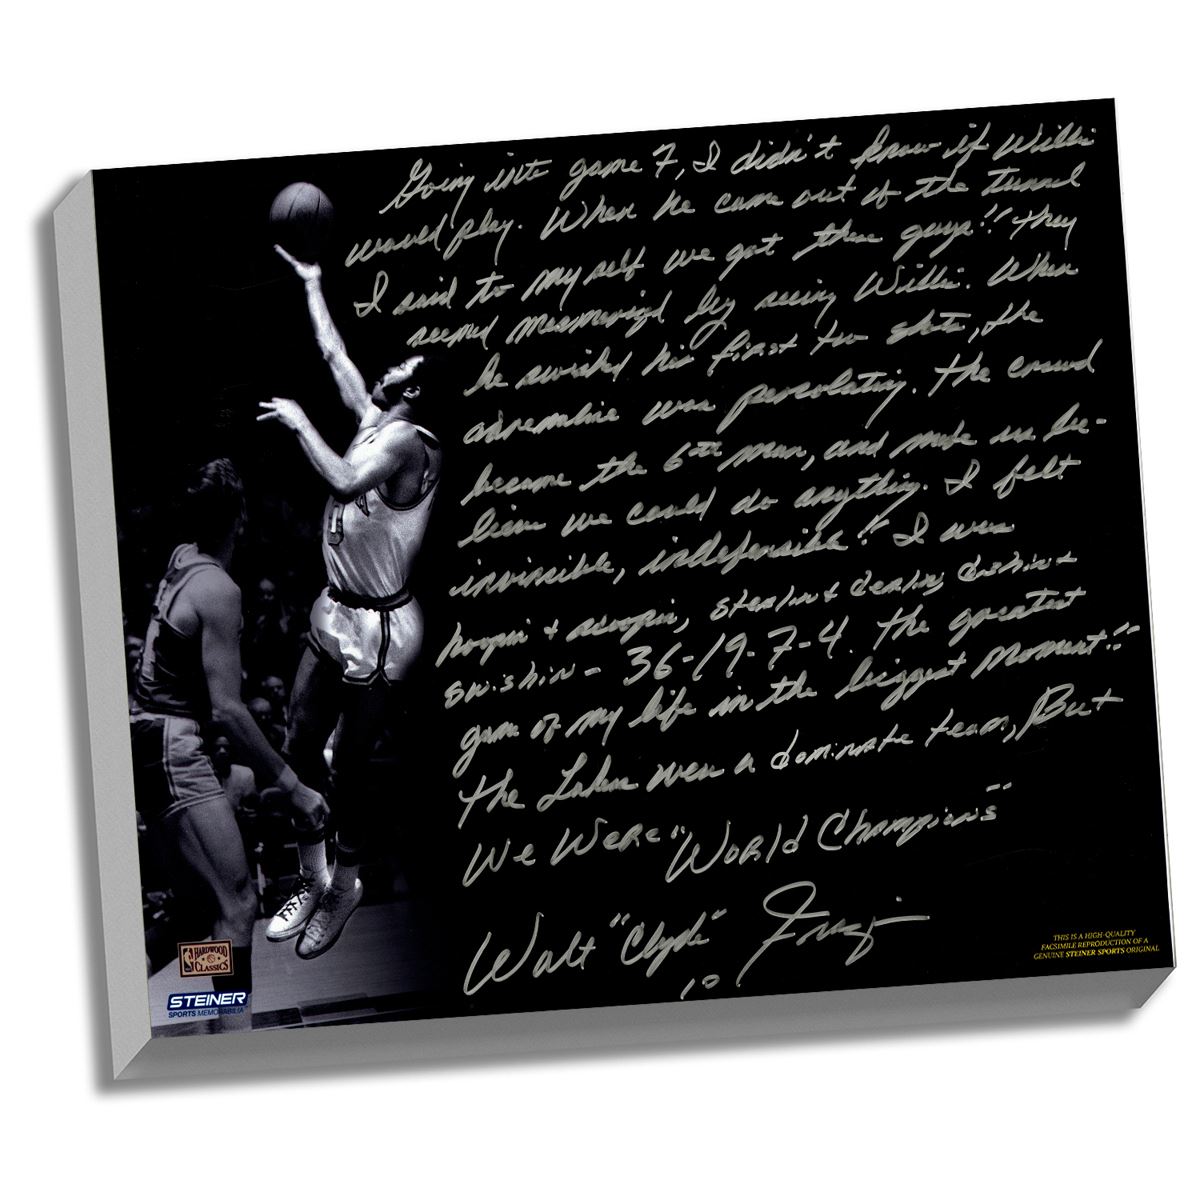 Going into game 7, I didn't know if Willis
would play. When he came out of the tunnel
I said to my self we got these guys!! They
seemed mesmerized by seeing Willis. When
he swished his first two shots, the
adrenaline was percolating. The crowd
became the 6th man, and made us be-
lieve we could do anything. I felt
invincible, indefensible!! I was
hoopin' + scoopin, stealin + dealin, dishin +
swishin - 36-19-7-4. The greatest
game of my life in the biggest moment!!
The Lakers were a dominate team, But
We Were "World Champions"
Walt "Clyde" Frazier
10
NBA HARDWOOD CLASSICS
STEINER
SPORTS MEMORABILIA
THIS IS A HIGH-QUALITY
FACSIMILE REPRODUCTION OF A
GENUINE STEINER SPORTS ORIGINAL